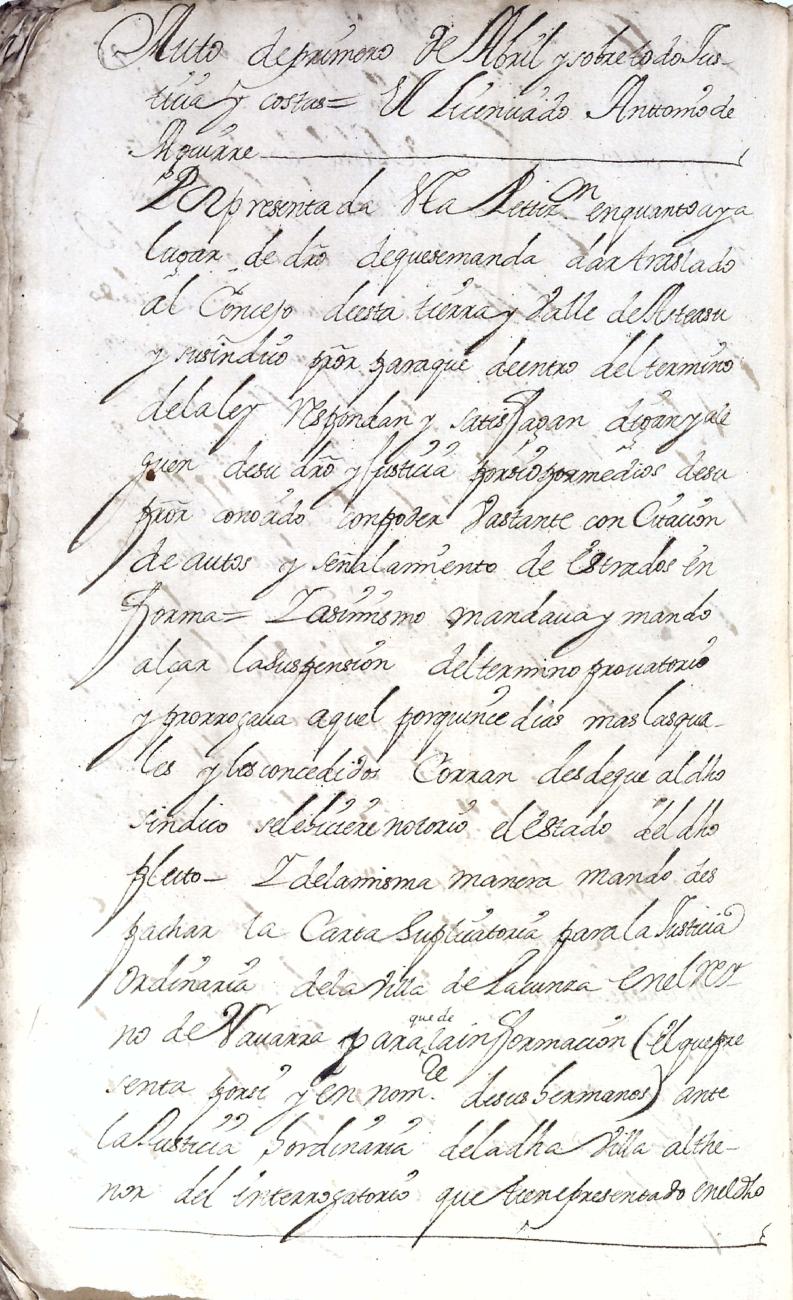 Auto de primero de Abril y sobre todo Jus-
ticia y costas= El Licenciado Anttonio de
Aguirre
Por presentada Vta Pettizn en quanto aya
lugar de dro de que se manda dar traslado
al Concejo de esta tierra y Valle de Asteasu
y su sindico pror para que dentro del termino
de la ley Respondan y satisfagan digan y ale
guen de su dro y Justicia por si o por medios de su
pror conocido con poder Vastante con Citacion
de autos y señalamiento de Estrados en
forma= I asimismo mandaua y mando
alçar la suspension del termino provatorio
y prorrogaua aquel por quince dias mas los qua-
les y los concedidos Corran desde que al dho
sindico se le hiciere notorio el Estado del dho
pleito- I de la misma manera mando des
pachar la Carta Suplicatoria para la Justicia
Ordinaria de la Villa de Lacunza En el Rey-
no de Nauarra para que de la informacion (el que pre
senta por si y en nom.e de sus hermanos) ante
la Justicia hordinaria de la dha Villa al the-
nor del interrogatorio que tiene presentado en el dho